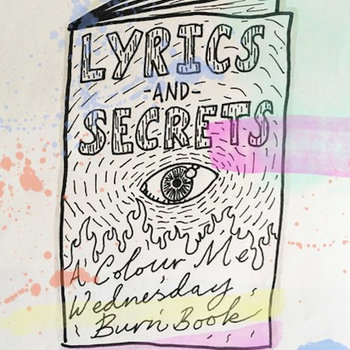 LYRICS
-AND-
SECRETS
A Colour Me
Wednesday
Burn Book